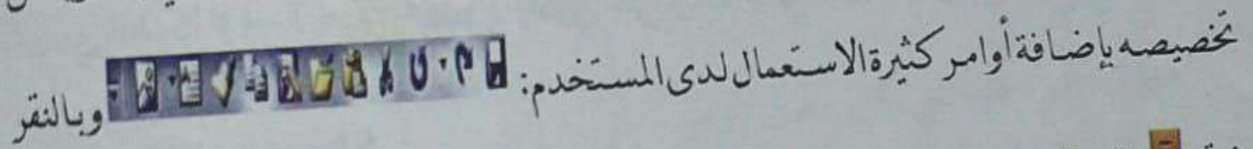 تخصيصه بإضافة أوامر كثيرة الاستعمال لدى المستخدم: وبالنقر